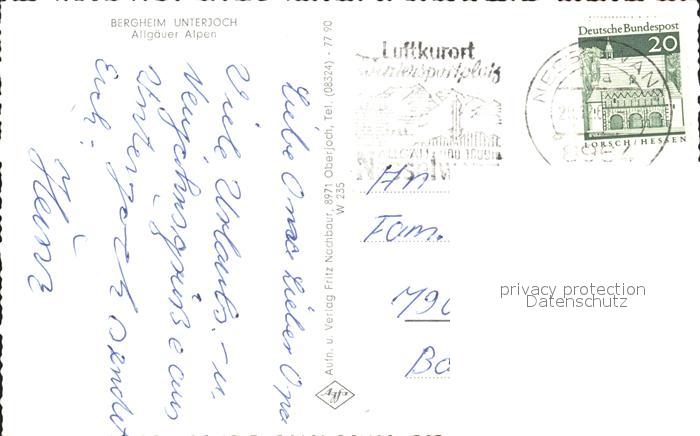 BERGHEIM UNTERJOCH
Allgäuer Alpen
Liebe Oma Lieber Opa
Viele Urlaubs- u.
Neujahrsgrüße aus
Unterjoch sendet
Euch
Heinz
Aufn. u. Verlag Fritz Nachbaur, 8971 Oberjoch, Tel. (08324) - 77 90
W 235
Luftkurort
Wintersportplatz
Deutsche Bundespost
20
LORSCH/HESSEN
An
Fam.
790
privacy protection
Datenschutz